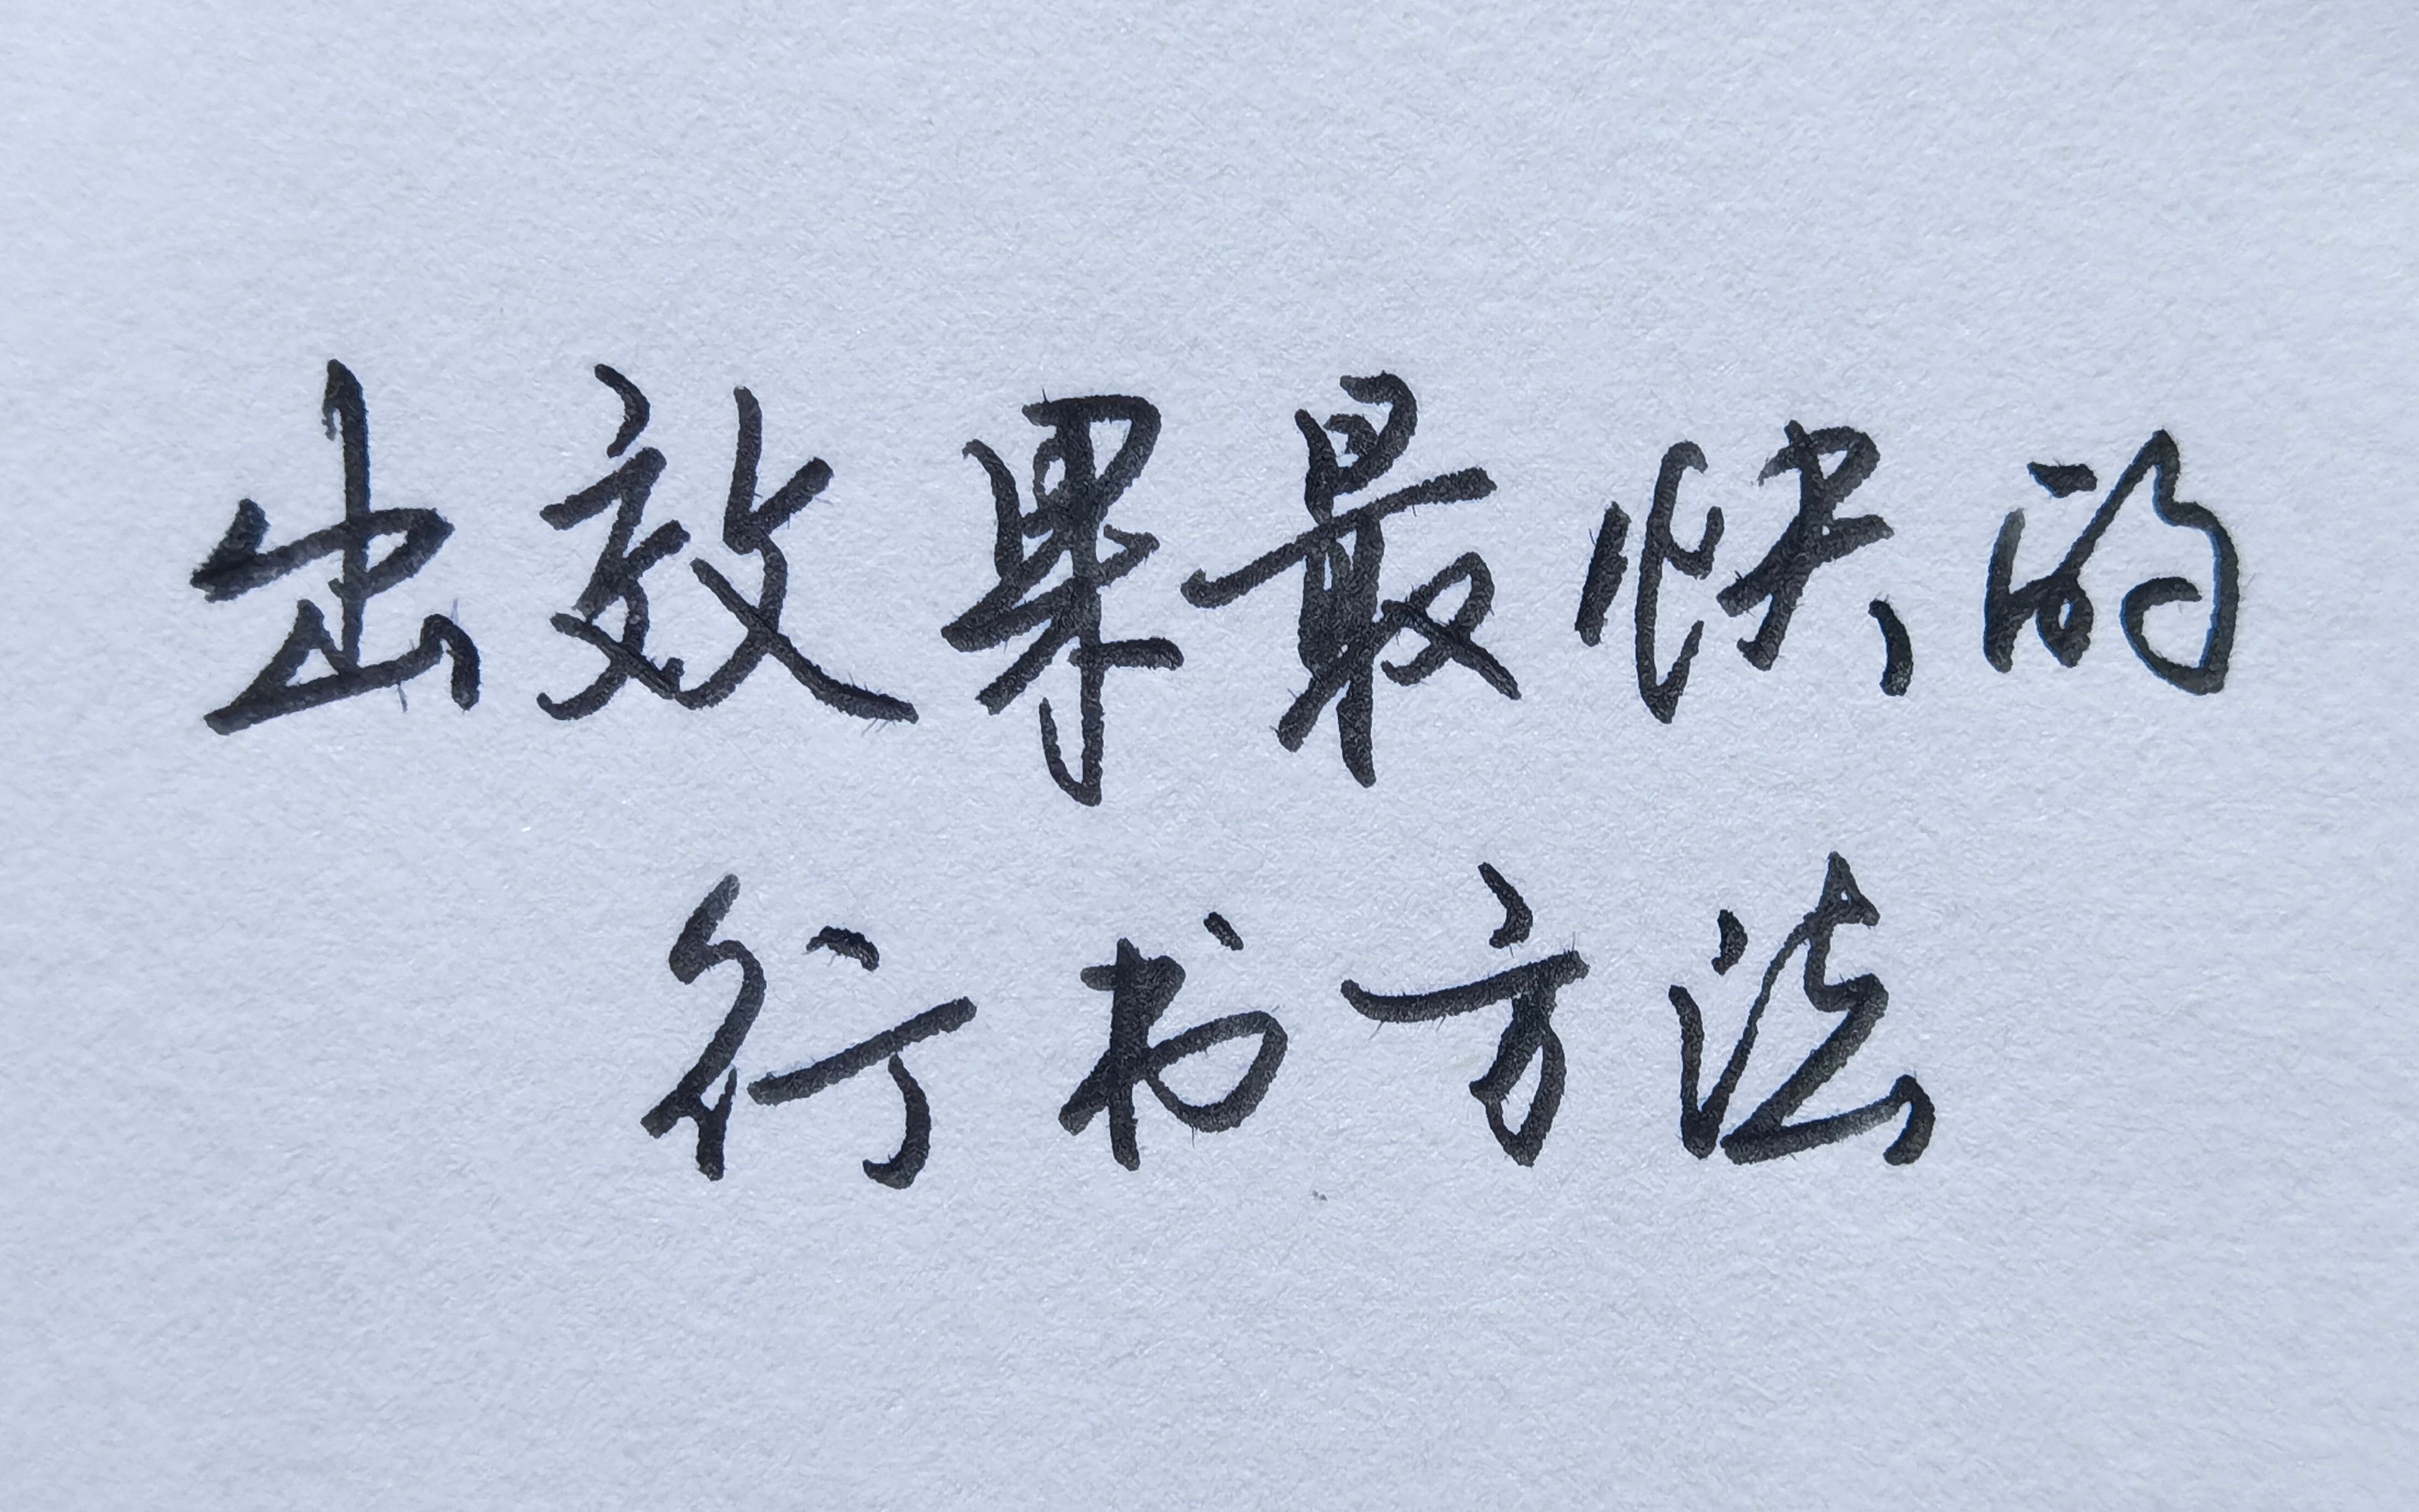 出效果最快的
行书方法